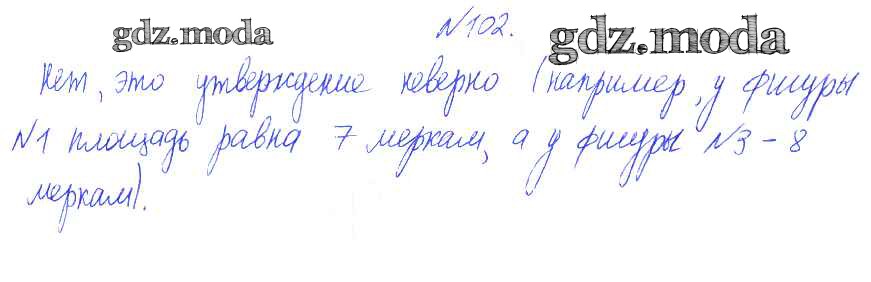 №102.
gdz.moda gdz.moda
Нет, это утверждение неверно (например, у фигуры
№1 площадь равна 7 меркам, а у фигуры №3 – 8
меркам).